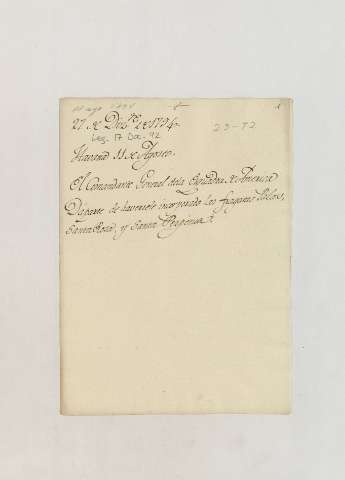 11 ago 1794
27 de Dizre de 1794
Leg. 17 Doc. 92
23-92
Havana 11 de Agosto.
El Comandante General de la Esquadra de America
Da parte de haversele incorporado las fragatas
Santa Rosa, y Santa